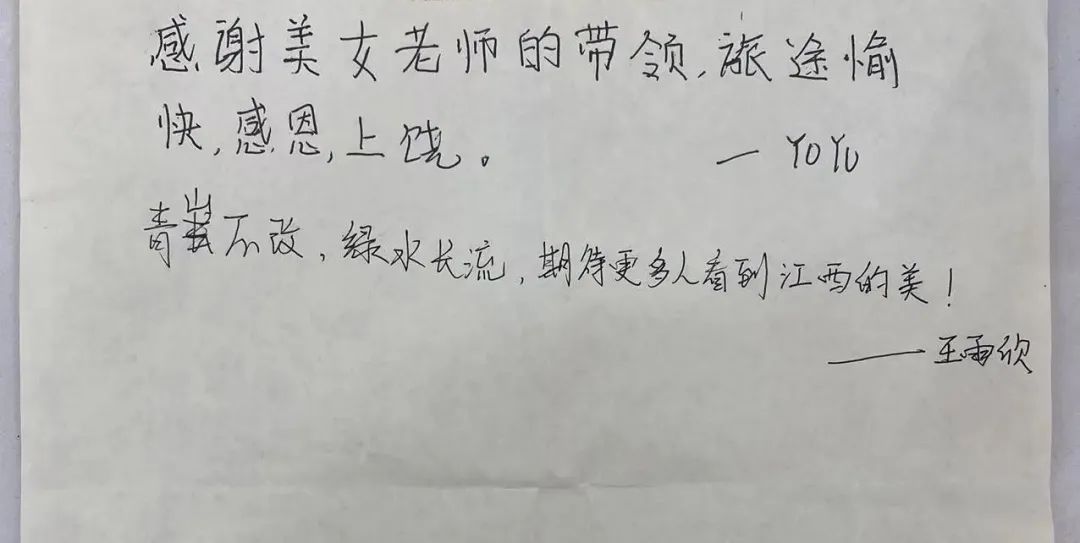 感谢美女老师的带领,旅途愉
快,感恩,上饶。 — YOYU
青山不改,绿水长流,期待更多人看到江西的美!
——王雨欣